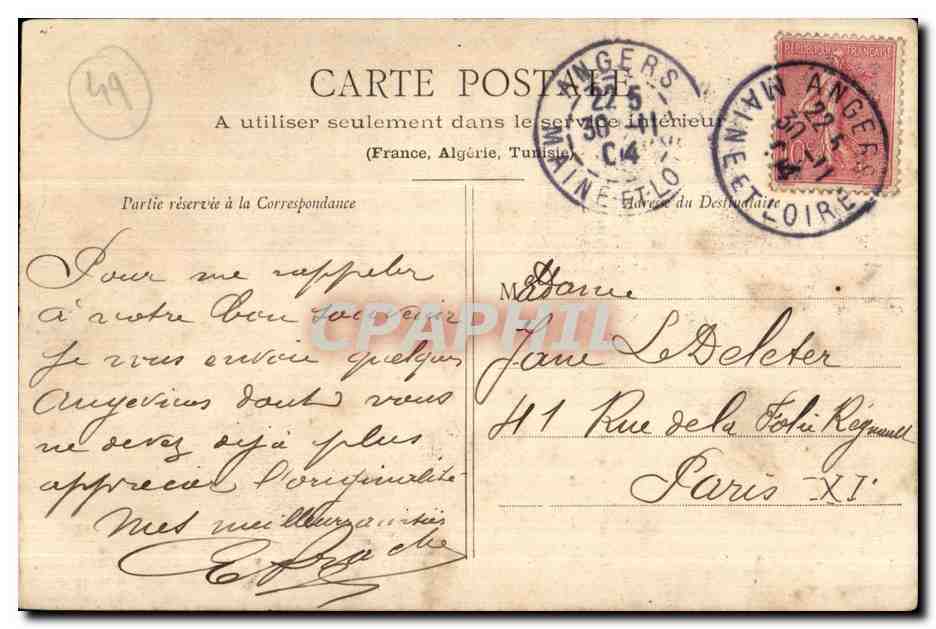 49
CARTE POSTALE
A utiliser seulement dans le service intérieur
(France, Algérie, Tunisie)
ANGERS
22 5
30 11
04
MAINE-ET-LO
RÉPUBLIQUE FRANÇAISE
ANGERS
22 5
30 11
MAINE ET LOIRE
Partie réservée à la Correspondance
Pour me rappeler
à votre bon souvenir
je vous envoie quelques
angevins dont vous
ne devez déjà plus
apprécier l'originalité
Mes meilleures amitiés
Adresse du Destinataire
Madame
Jane Le Deleter
41 Rue de la Folie Regnault
Paris XIe
CPAPHIL